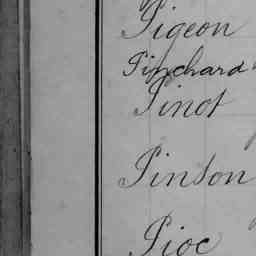 Pigeon
Pinchard
Pinot
Pinson
Pioc